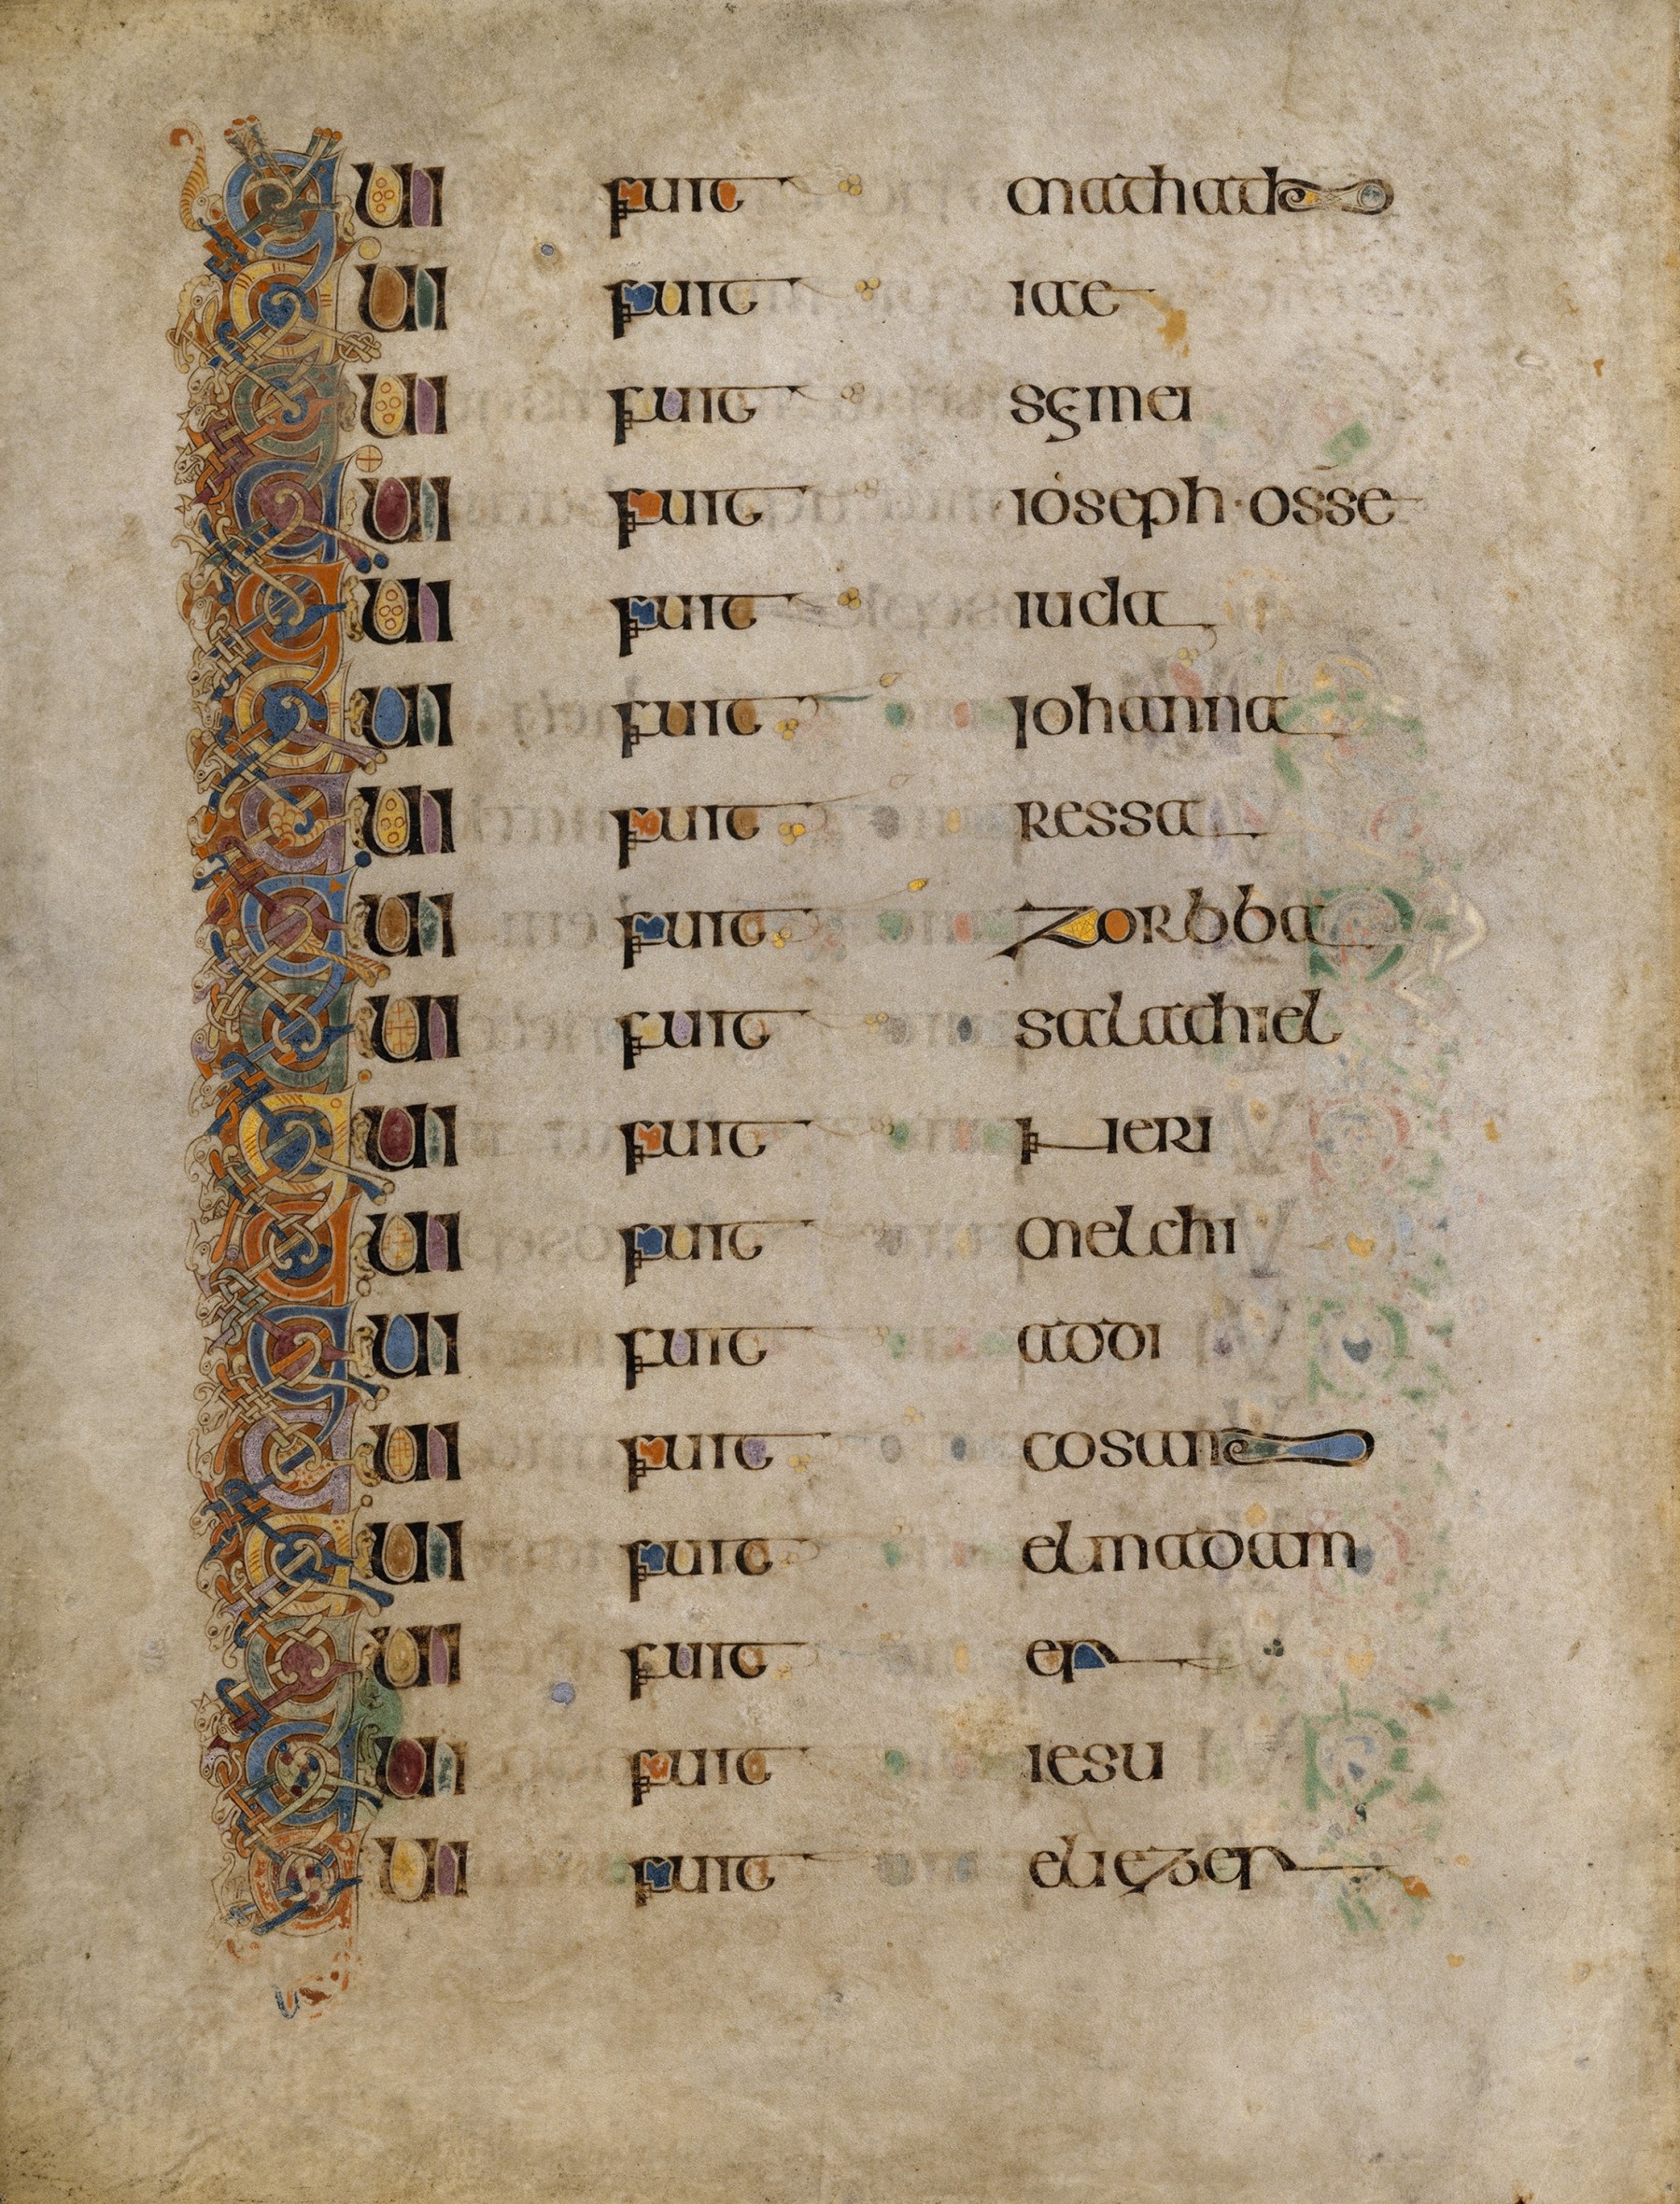 QUI fuit mathath
QUI fuit iae
QUI fuit semei
QUI fuit ioseph · osse
QUI fuit iuda
QUI fuit iohanna
QUI fuit ressa
QUI fuit zorbba
QUI fuit salathiel
QUI fuit neri
QUI fuit melchi
QUI fuit addi
QUI fuit cosan
QUI fuit elmadam
QUI fuit er
QUI fuit iesu
QUI fuit eliezer